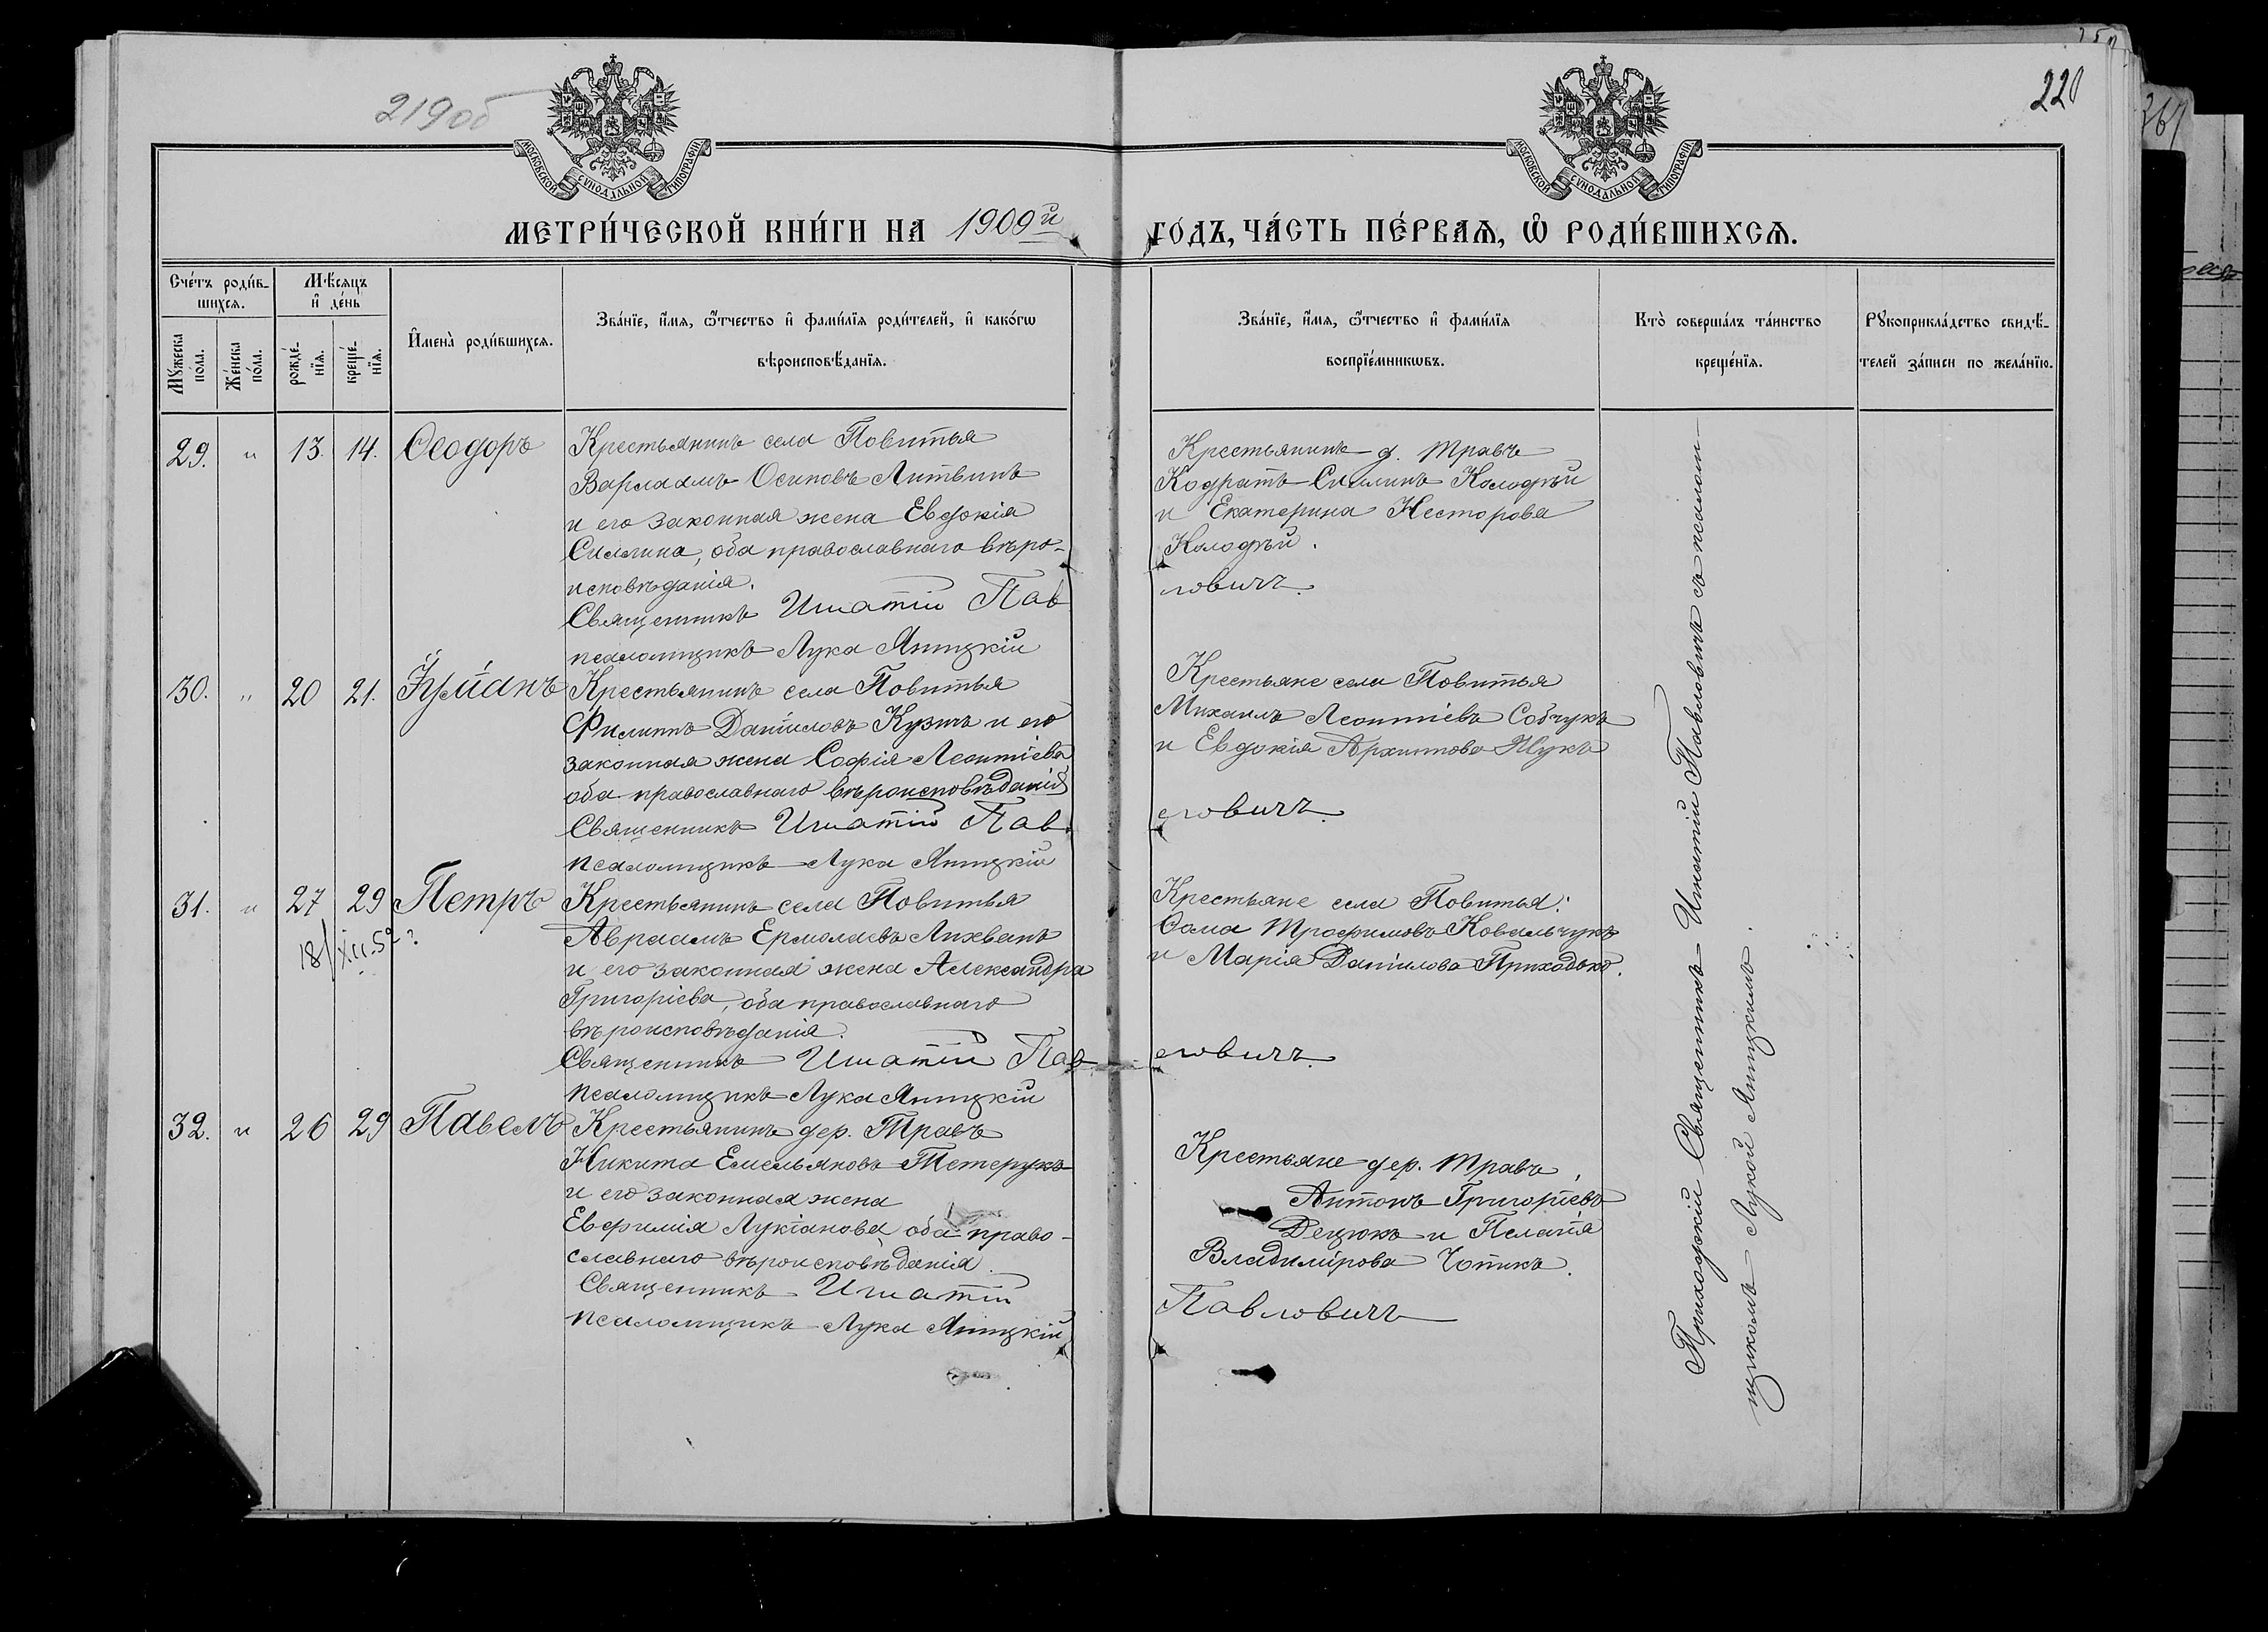 219об
220
МОСКОВСКОЙ СѴНОДАЛЬНОЙ ТИПОГРАФІИ
МОСКОВСКОЙ СѴНОДАЛЬНОЙ ТИПОГРАФІИ
МЕТРИ́ЧЕСКОЙ КНИ́ГИ НА 1909й ГО́ДЪ, ЧА́СТЬ ПЕ́РВАѦ, Ѡ҆ РОДИ́ВШИХСѦ.
Сче́тъ роди́в-
шихсѧ.
Мꙋ́жеска по́ла.
Же́нска по́ла.
Мѣ́сѧцъ
и҆ де́нь
рожде́-
нїѧ.
креще́-
нїѧ.
И҆мена̀ роди́вшихсѧ.
Зва́нїе, и҆́мѧ, ѻ҆́тчество и҆ фами́лїѧ роди́телей, и҆ како́гѡ
вѣроисповѣ́данїѧ.
Зва́нїе, и҆́мѧ, ѻ҆́тчество и҆ фами́лїѧ
воспрїе́мникѡвъ.
Кто̀ соверша́лъ та́инство
креще́нїѧ.
Рꙋкоприкла́дство свидѣ́-
телей за́писи по жела́нїю.
29. " 13. 14. Ѳеодоръ
Крестьянинъ села Повитья
Варлаамъ Осиповъ Литвинъ
и его законная жена Евдокія
Силина, оба православнаго вѣро-
исповѣданія.
Священникъ Игнатій Пав
ловичъ.
псаломщикъ Лука Яницкій
Крестьянинъ д. Травъ
Кодратъ Силинъ Колодѣй
и Екатерина Несторова
Колодѣй.
30. " 20 21.
Крестьянинъ села Повитья
Филиппъ Даніиловъ Кузичъ и его
законная жена Софія Леонтіева
оба православнаго вѣроисповѣданія
Священникъ Игнатій Пав
ловичъ.
псаломщикъ Лука Яницкій
Крестьяне села Повитья
Михаилъ Леонтіевъ Собчукъ
и Евдокія Архипова Жукъ
31. " 27 29 Петръ
18/XII.52 ?
Крестьянинъ села Повитья
Авраамъ Ермолаевъ Лихванъ
и его законная жена Александра
Григоріева, оба православнаго
вѣроисповѣданія.
Священникъ Игнатій Пав
ловичъ.
псаломщикъ Лука Яницкій
Крестьяне села Повитья:
Ѳома Трофимовъ Ковальчукъ
и Марія Даніилова Приходько.
32. " 26 29 Павелъ
Крестьянинъ дер. Травъ
Никита Емельяновъ Тетерукъ
и его законная жена
Евфимія Лукіанова, оба право-
славнаго вѣроисповѣданія.
Священникъ Игнатій
Павловичъ
псаломщикъ Лука Яницкій
Крестьяне дер. Травъ,
Антонъ Григоріевъ
Децюкъ и Пелагія
Владимірова Чопикъ.
Приходскій Священникъ Игнатій Павловичъ съ псалом-
щикомъ Лукой Яницкимъ.